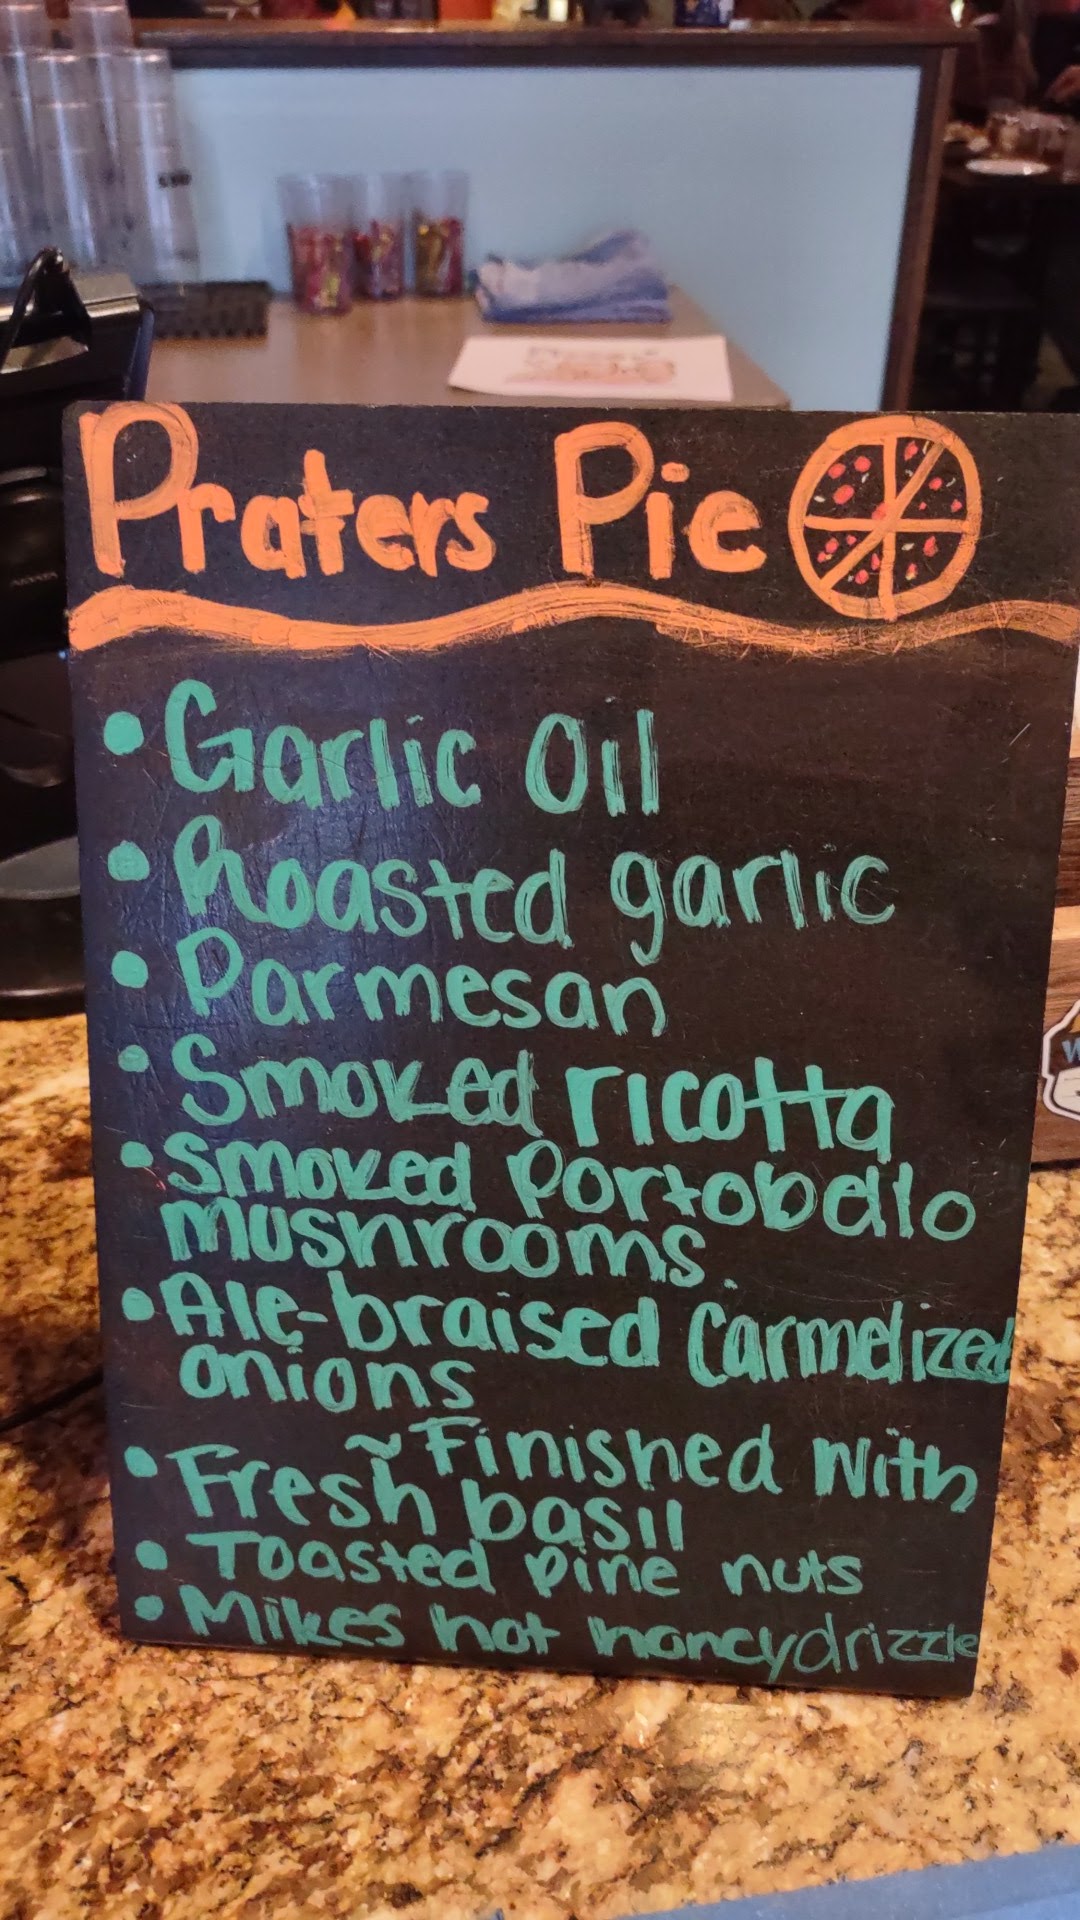 Praters Pie
• Garlic Oil
• Roasted garlic
• Parmesan
• Smoked ricotta
• Smoked Portobello
mushrooms.
• Ale-braised Carmelized
onions
~Finished with
• Fresh basil
• Toasted pine nuts
• Mikes hot honey drizzle